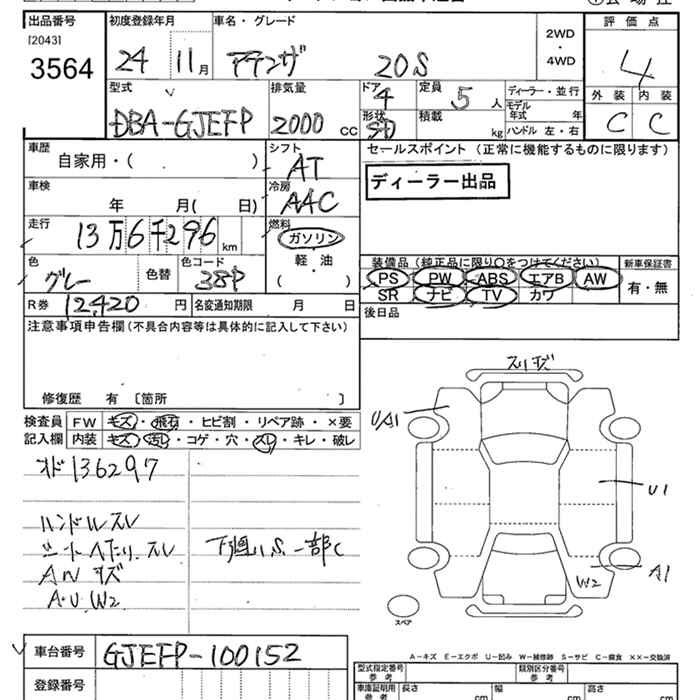 出品番号 初度登録年月 車名・グレード 2WD・4WD 評価点
[2043]
3564 24 11月 アテンザ 20S 4
型式 排気量 ドア 定員 ディーラー・並行 外装 内装
DBA-GJEFP 2000 CC 4 5人 モデル年式 年 C C
形状 SD 積載 kg ハンドル 左・右
車歴 シフト セールスポイント (正常に機能するものに限ります)
自家用・( ) AT
ディーラー出品
車検 冷房
年 月( 日) AAC
走行 燃料
13万6千296km ガソリン
軽・油
( )
色 色替 色コード
グレー 38P
装備品(純正品に限り○をつけてください) 新車保証書
PS PW ABS エアB AW 有・無
SR ナビ TV カワ
R券 12,420円 名変通知期限 月 日
後日品
注意事項申告欄(不具合内容等は具体的に記入して下さい)
修復歴 有 〔箇所 〕
検査員 FW キズ・飛石・ヒビ割・リペア跡・×要
記入欄 内装 キズ・汚れ・コゲ・穴・スレ・キレ・破レ
オド136297
ハンドルスレ
シートヘタリ、スレ 下廻りS.一部C
ANキズ
A・U.W2
スリキズ
UA1
U1
W2 A1
スペア
車台番号 GJEFP-100152
登録番号
A-キズ E-エクボ U-凹み W-補修跡 S-サビ C-腐食 ××-交換済
型式指定番号 参考 類別区分番号 参考
車庫証明用 参考 長さ cm 幅 cm 高さ cm